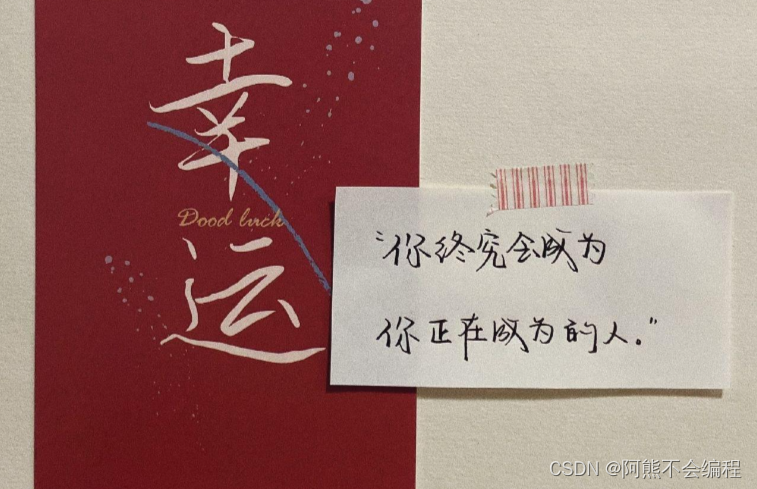 幸运
Dood luck
“你终究会成为
你正在成为的人。”
CSDN @阿熊不会编程